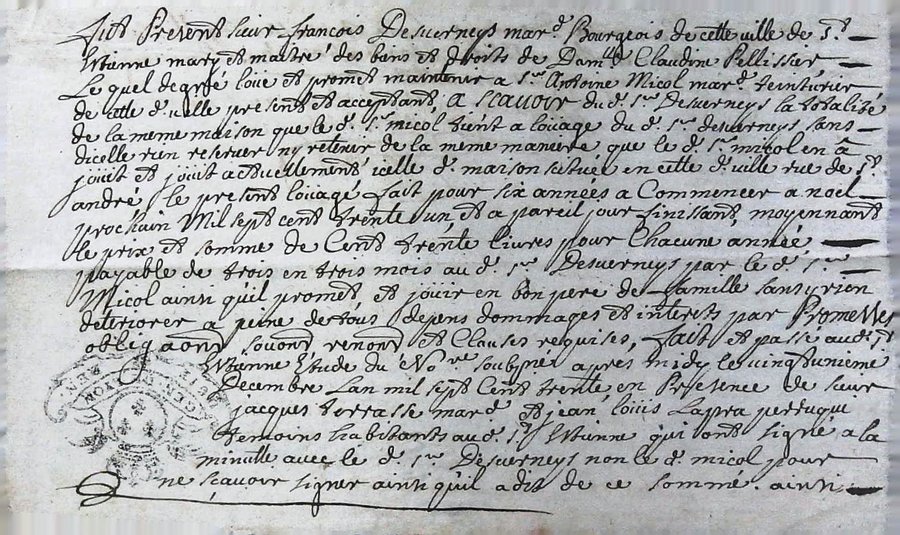 fut Present sieur françois Desverneys mar.d Bourgeois de cette ville de S.t
Etienne mary et maitre des biens et droits de Dam.lle Claudine Pellissier
Lequel de gré loue et promet maintenir a S.r Antoine Micol mar.d teinturier
de cette d. ville present et acceptant, a scavoir du d. S.r Desverneys la totalité
de la meme maison que le d. S.r micol tient a loüage du d. S.r desverneys sans
dicelle rien reserver ny retenir de la meme maniere que le d. S.r micol en a
joüit et joüit actuellement icelle d. maison scituée en cette d. ville rue de S.t
andré, le present loüage fait pour six années a Commencer a noel
prochain Mil sept cent trente un et a pareil jour finissant, moyennant
le prix et somme de Cent trente livres pour Chacune année
payable de trois en trois mois au d. S.r Desverneys par le d. S.r
Micol ainsi quil promet et joüir en bon pere de famille sans y rien
deteriorer a peine de tous depens dommages et interests par Promesses
obliga.ons renon.s et Clauses requises, fait et passé aud. S.t
Etienne Etude du No.re soubsné apres midy le vingt unieme
Decembre Lan mil sept Cent trente en Presence de sieur
jacques terrasse mar.d et jean loüis Lapra perruqui
temoins habitants au d. S.t Etienne qui ont signé a la
minutte avec le d. S.r Desverneys non le d. micol pour
ne scavoir signer ainsi quil a dit de ce sommé. ainsi